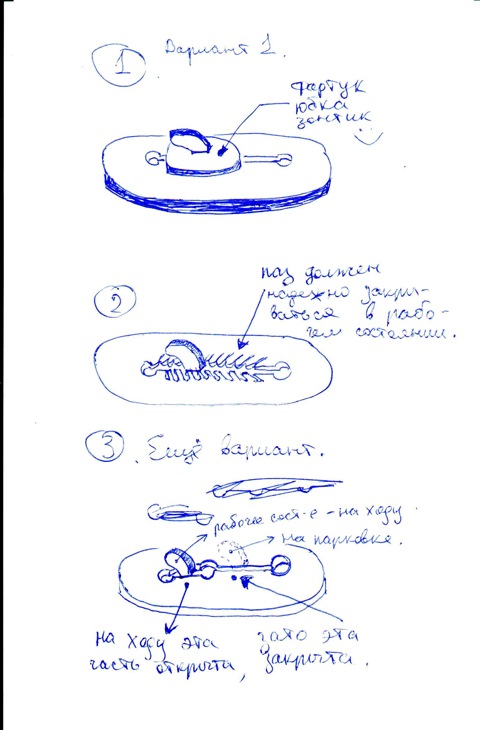 1 Вариант 1.
фартук
юбка
зонтик
2
паз должен
надежно закры-
ваться в рабо-
чем состоянии.
3 Ещё вариант.
рабочее сост-е - на ходу
на парковке.
на ходу эта зато эта
часть открыта, закрыта.